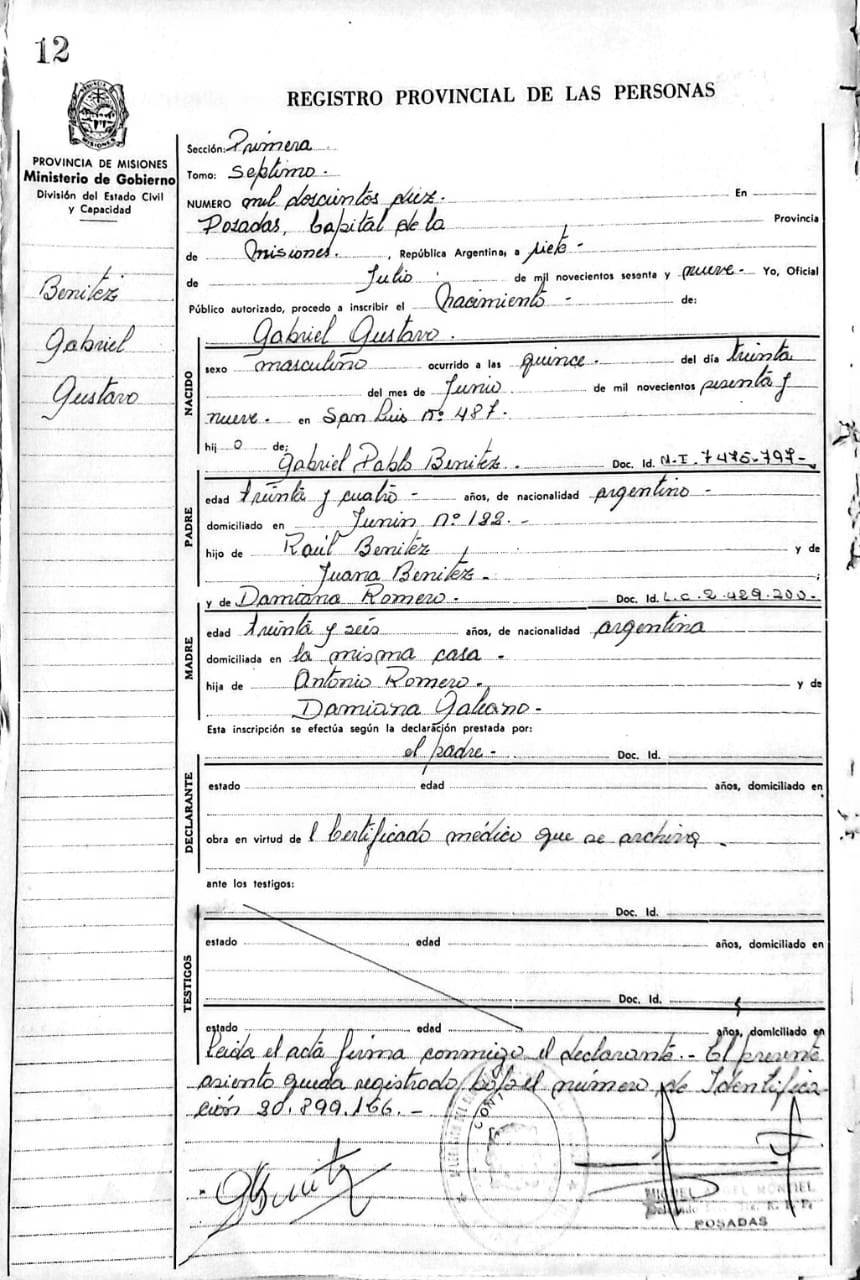 12
REGISTRO PROVINCIAL DE LAS PERSONAS
PROVINCIA DE MISIONES
Ministerio de Gobierno
División del Estado Civil
y Capacidad
Benitez
Gabriel
Gustavo
Sección: Primera
Tomo: Septimo.
NUMERO mil doscientos diez. En
Posadas, Capital de la Provincia
de Misiones. , República Argentina, a siete -
de Julio de mil novecientos sesenta y nueve - Yo, Oficial
Público autorizado, procedo a inscribir el Nacimiento - de:
NACIDO
Gabriel Gustavo.
sexo masculino ocurrido a las quince. del día treinta
del mes de Junio de mil novecientos sesenta y
nueve. en San Luis nº 487.
hij o de:
Gabriel Pablo Benitez. Doc. Id. M.I. 7.475.797-
PADRE
edad treinta y cuatro - años, de nacionalidad argentino -
domiciliado en Junin nº 122. -
hijo de Raúl Benitez y de
Juana Benitez. - ;
y de Damiana Romero. Doc. Id. L.C. 2.429.200-
MADRE
edad treinta y seis años, de nacionalidad argentina
domiciliada en la misma casa -
hija de Antonio Romero. y de
Damiana Galeano -
Esta inscripción se efectúa según la declaración prestada por:
el padre - Doc. Id.
DECLARANTE
estado edad años, domiciliado en
obra en virtud de l Certificado médico que se archiva.
ante los testigos:
Doc. Id.
TESTIGOS
estado edad años, domiciliado en
Doc. Id.
estado edad años, domiciliado en
Leida el acta firma conmigo el declarante. - El presente
asiento queda registrado bajo el número de Identifica-
ción 20.899.166. -
GBenitez
MIGUEL ANGEL MONTIEL
POSADAS